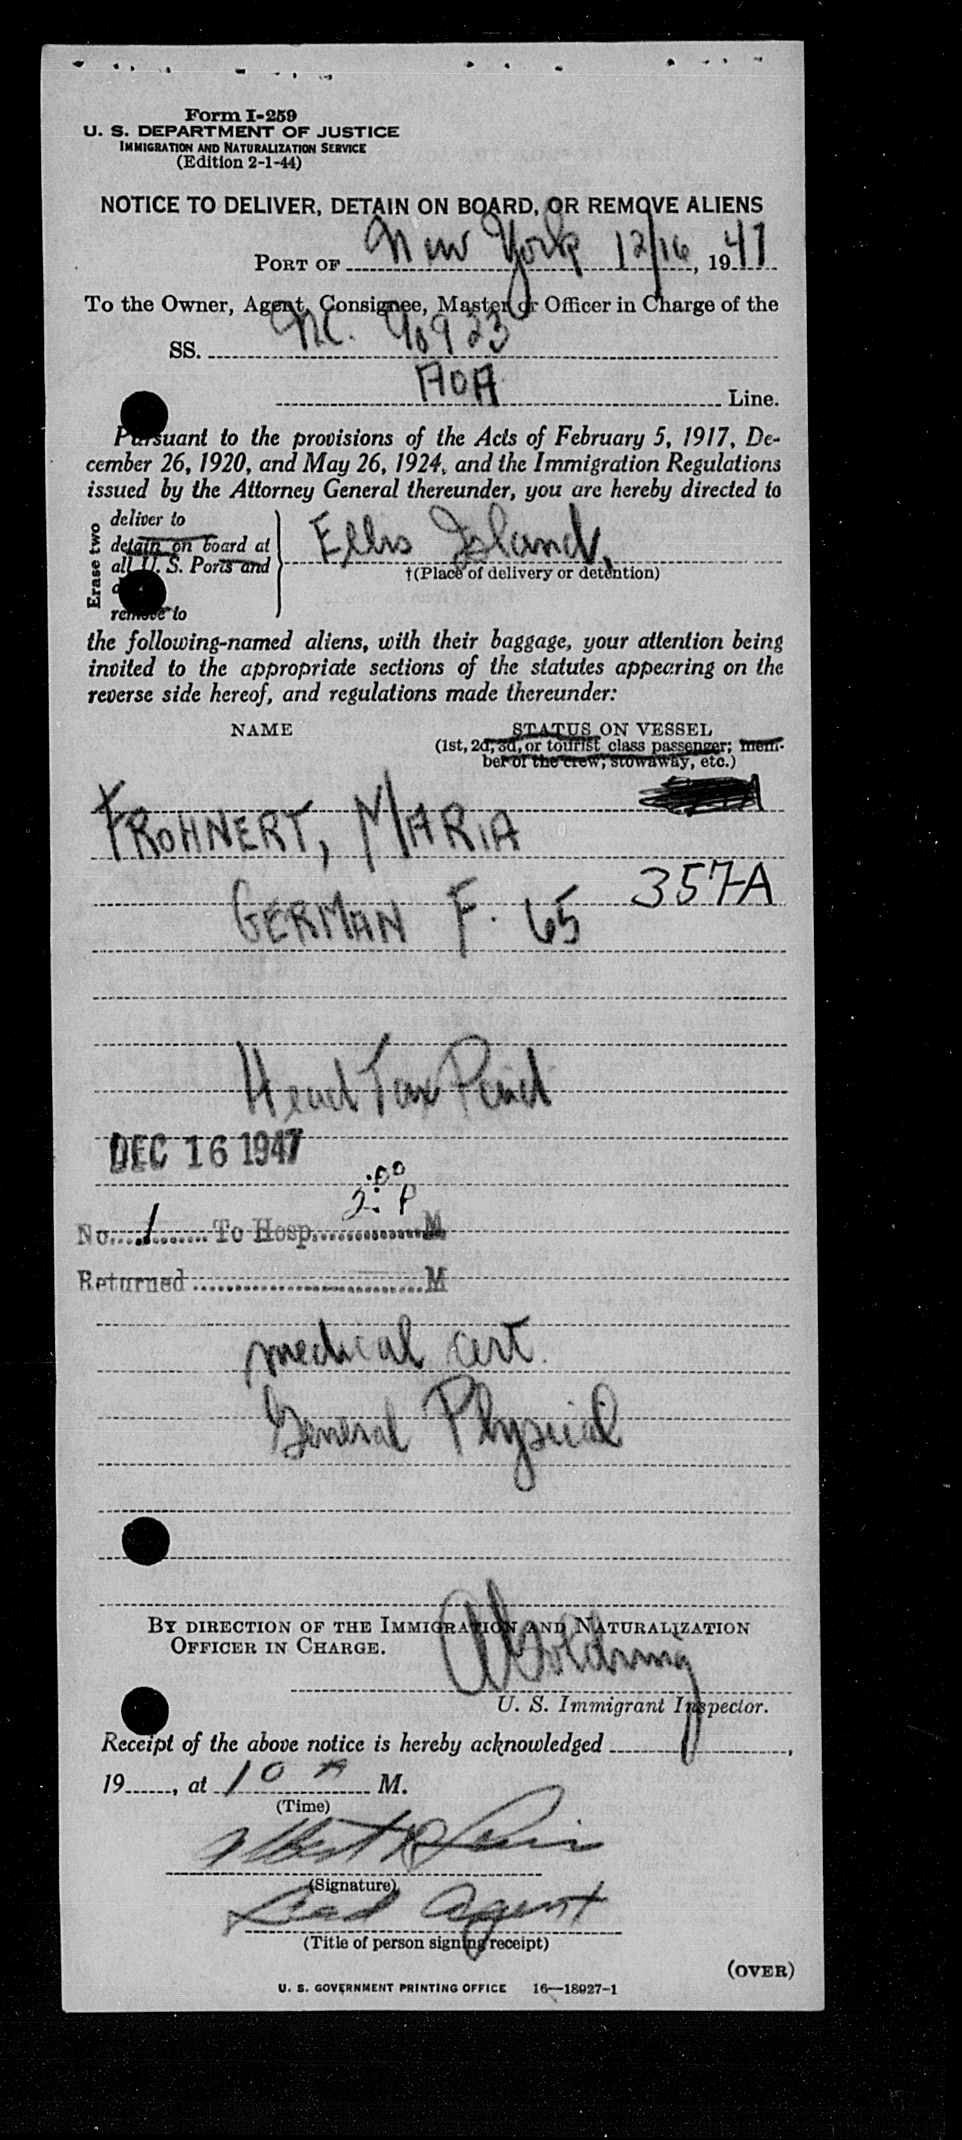 Form I-259
U. S. DEPARTMENT OF JUSTICE
IMMIGRATION AND NATURALIZATION SERVICE
(Edition 2-1-44)
NOTICE TO DELIVER, DETAIN ON BOARD, OR REMOVE ALIENS
PORT OF New York 12/16, 1947
To the Owner, Agent, Consignee, Master or Officer in Charge of the
SS. NC. 90923
AOA Line.
Pursuant to the provisions of the Acts of February 5, 1917, De-
cember 26, 1920, and May 26, 1924, and the Immigration Regulations
issued by the Attorney General thereunder, you are hereby directed to
Erase two
deliver to
detain on board at
all U. S. Ports and
remove to
Ellis Island,
†(Place of delivery or detention)
the following-named aliens, with their baggage, your attention being
invited to the appropriate sections of the statutes appearing on the
reverse side hereof, and regulations made thereunder:
NAME STATUS ON VESSEL
(1st, 2d, 3d, or tourist class passenger; mem-
ber of the crew; stowaway, etc.)
FROHNERT, MARIA
357-A
GERMAN F. 65
Head Tax Paid
DEC 16 1947
No. 1 To Hosp. 2:00 P M
Returned M
medical cert.
General Physical
BY DIRECTION OF THE IMMIGRATION AND NATURALIZATION
OFFICER IN CHARGE.
U. S. Immigrant Inspector.
Receipt of the above notice is hereby acknowledged ,
19 , at 10 A M.
(Time)
Albert
(Signature)
Agent
(Title of person signing receipt)
(OVER)
U. S. GOVERNMENT PRINTING OFFICE 16—18927-1